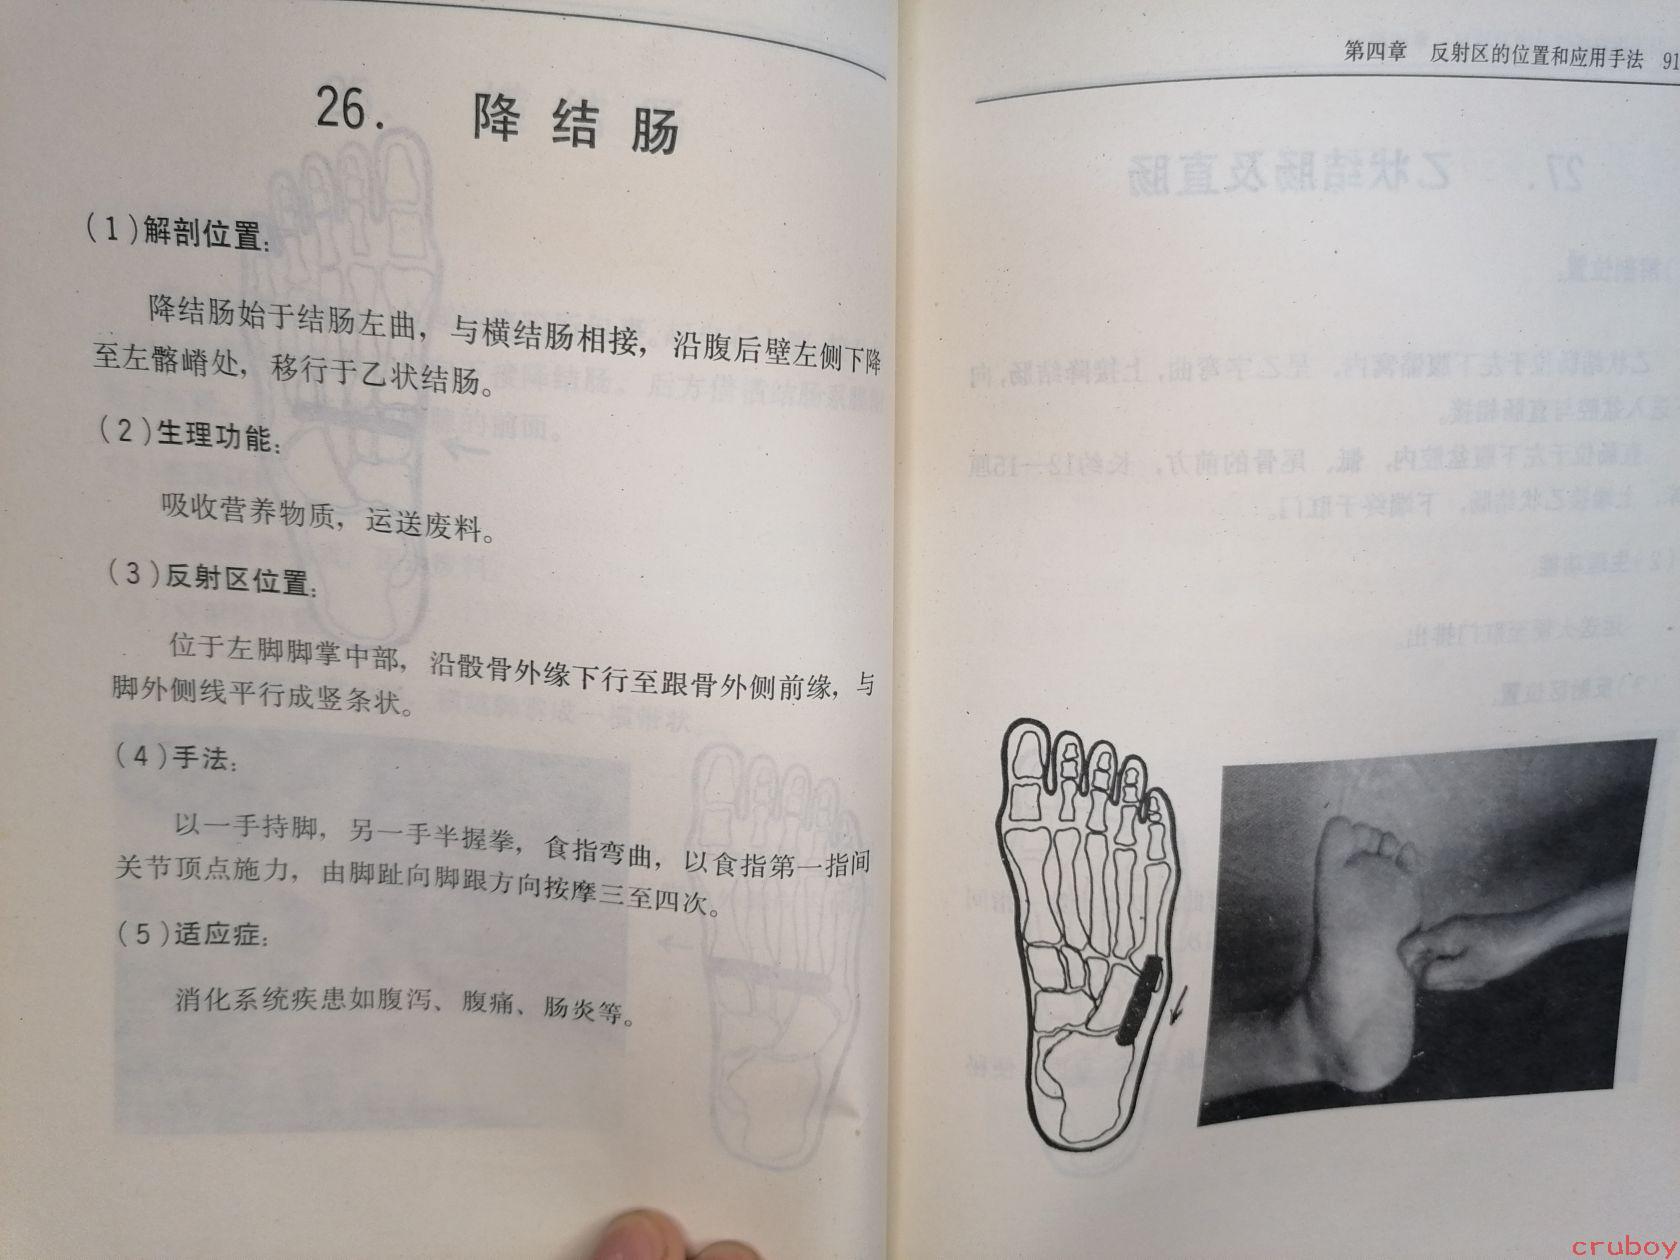 26. 降结肠
(1)解剖位置:
降结肠始于结肠左曲，与横结肠相接，沿腹后壁左侧下降
至左髂嵴处，移行于乙状结肠。
(2)生理功能:
吸收营养物质，运送废料。
(3)反射区位置:
位于左脚脚掌中部，沿骰骨外缘下行至跟骨外侧前缘，与
脚外侧线平行成竖条状。
(4)手法:
以一手持脚，另一手半握拳，食指弯曲，以食指第一指间
关节顶点施力，由脚趾向脚跟方向按摩三至四次。
(5)适应症:
消化系统疾患如腹泻、腹痛、肠炎等。
第四章 反射区的位置和应用手法 91
27. 乙状结肠及直肠
cruboy